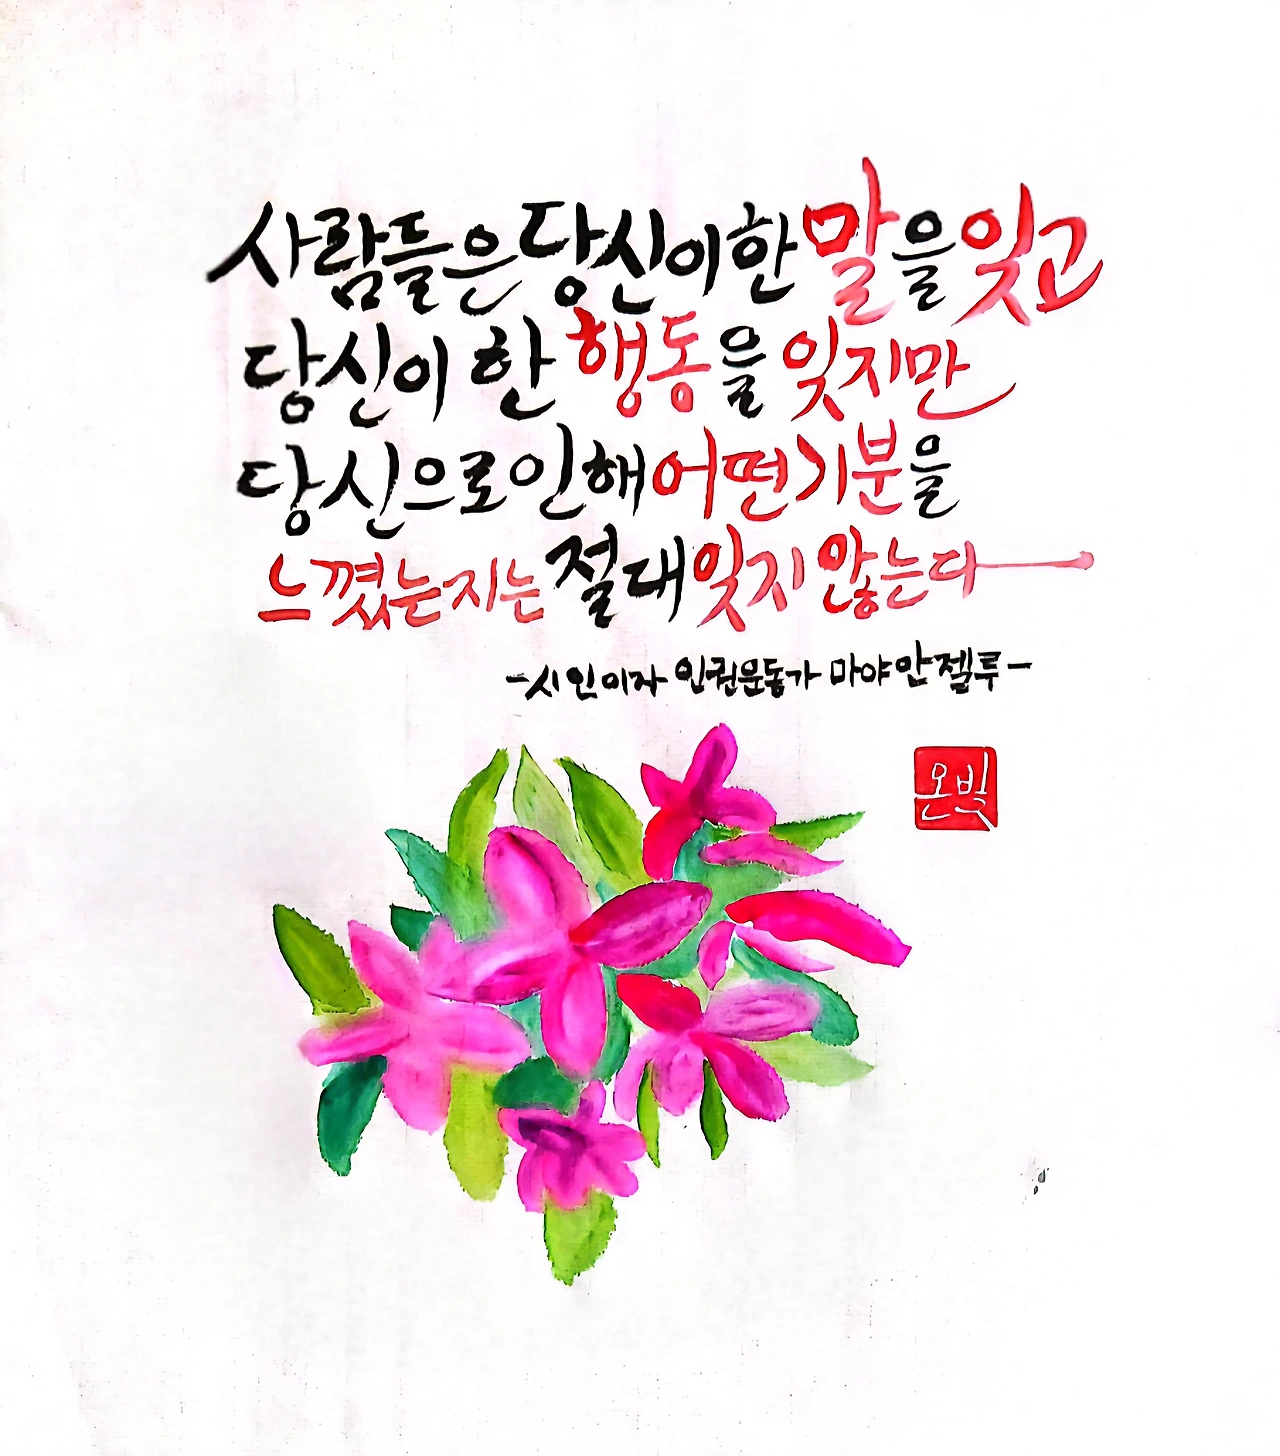 사람들은 당신이 한 말을 잊고
당신이 한 행동을 잊지만
당신으로 인해 어떤 기분을
느꼈는지는 절대 잊지 않는다
-시인이자 인권운동가 마야 안젤루-
온빛